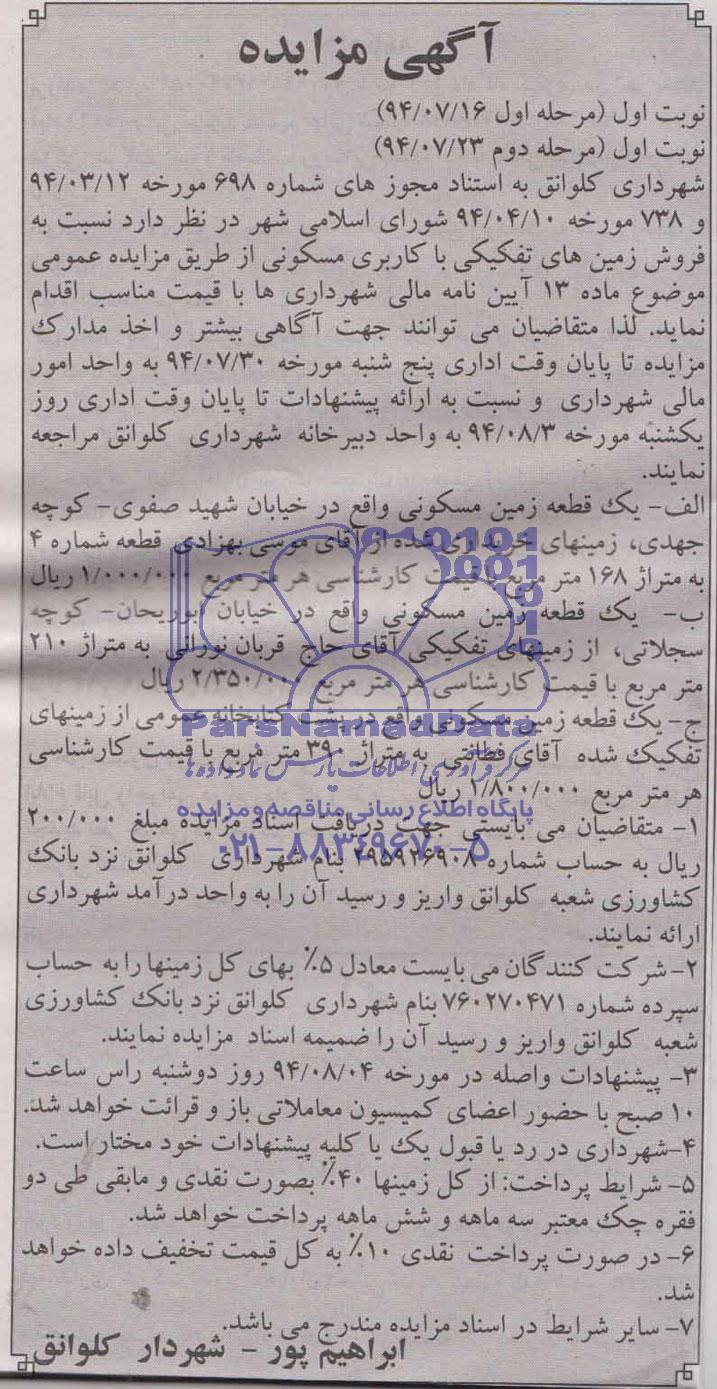 آگهی مزایده
نوبت اول (مرحله اول ۹۴/۰۷/۱۶)
نوبت اول (مرحله دوم ۹۴/۰۷/۲۳)
شهرداری کلوانق به استناد مجوز های شماره ۶۹۸ مورخه ۹۴/۰۳/۱۲
و ۷۳۸ مورخه ۹۴/۰۴/۱۰ شورای اسلامی شهر در نظر دارد نسبت به
فروش زمین های تفکیکی با کاربری مسکونی از طریق مزایده عمومی
موضوع ماده ۱۳ آیین نامه مالی شهرداری ها با قیمت مناسب اقدام
نماید. لذا متقاضیان می توانند جهت آگاهی بیشتر و اخذ مدارک
مزایده تا پایان وقت اداری پنج شنبه مورخه ۹۴/۰۷/۳۰ به واحد امور
مالی شهرداری و نسبت به ارائه پیشنهادات تا پایان وقت اداری روز
یکشنبه مورخه ۹۴/۰۸/۳ به واحد دبیرخانه شهرداری کلوانق مراجعه
نمایند.
الف- یک قطعه زمین مسکونی واقع در خیابان شهید صفوی- کوچه
جهدی، زمینهای خریداری شده از آقای موسی بهزادی قطعه شماره ۴
به متراژ ۱۶۸ متر مربع با قیمت کارشناسی هر متر مربع ۱/۰۰۰/۰۰۰ ریال
ب- یک قطعه زمین مسکونی واقع در خیابان ابوریحان- کوچه
سجلاتی، از زمینهای تفکیکی آقای حاج قربان نورانی به متراژ ۲۱۰
متر مربع با قیمت کارشناسی هر متر مربع ۲/۳۵۰/۰۰۰ ریال
ParsNamadData
ج- یک قطعه زمین مسکونی واقع در پشت کتابخانه عمومی از زمینهای
تفکیک شده آقای فطانتی به متراژ ۳۹۰ متر مربع با قیمت کارشناسی
هر متر مربع ۱/۸۰۰/۰۰۰ ریال
پایگاه اطلاع رسانی مناقصه و مزایده
۱- متقاضیان می بایستی جهت دریافت اسناد مزایده مبلغ ۲۰۰/۰۰۰
۰۲۱-۸۸۳۴۹۶۷۰-۵
ریال به حساب شماره ۲۹۵۹۲۶۹۰۸ بنام شهرداری کلوانق نزد بانک
کشاورزی شعبه کلوانق واریز و رسید آن را به واحد درآمد شهرداری
ارائه نمایند.
۲- شرکت کنندگان می بایست معادل ۵٪ بهای کل زمینها را به حساب
سپرده شماره ۷۶۰۲۷۰۴۷۱ بنام شهرداری کلوانق نزد بانک کشاورزی
شعبه کلوانق واریز و رسید آن را ضمیمه اسناد مزایده نمایند.
۳- پیشنهادات واصله در مورخه ۹۴/۰۸/۰۴ روز دوشنبه راس ساعت
۱۰ صبح با حضور اعضای کمیسیون معاملاتی باز و قرائت خواهد شد.
۴-شهرداری در رد یا قبول یک یا کلیه پیشنهادات خود مختار است.
۵- شرایط پرداخت: از کل زمینها ۴۰٪ بصورت نقدی و مابقی طی دو
فقره چک معتبر سه ماهه و شش ماهه پرداخت خواهد شد.
۶- در صورت پرداخت نقدی ۱۰٪ به کل قیمت تخفیف داده خواهد
شد.
۷- سایر شرایط در اسناد مزایده مندرج می باشد.
ابراهیم پور - شهردار کلوانق